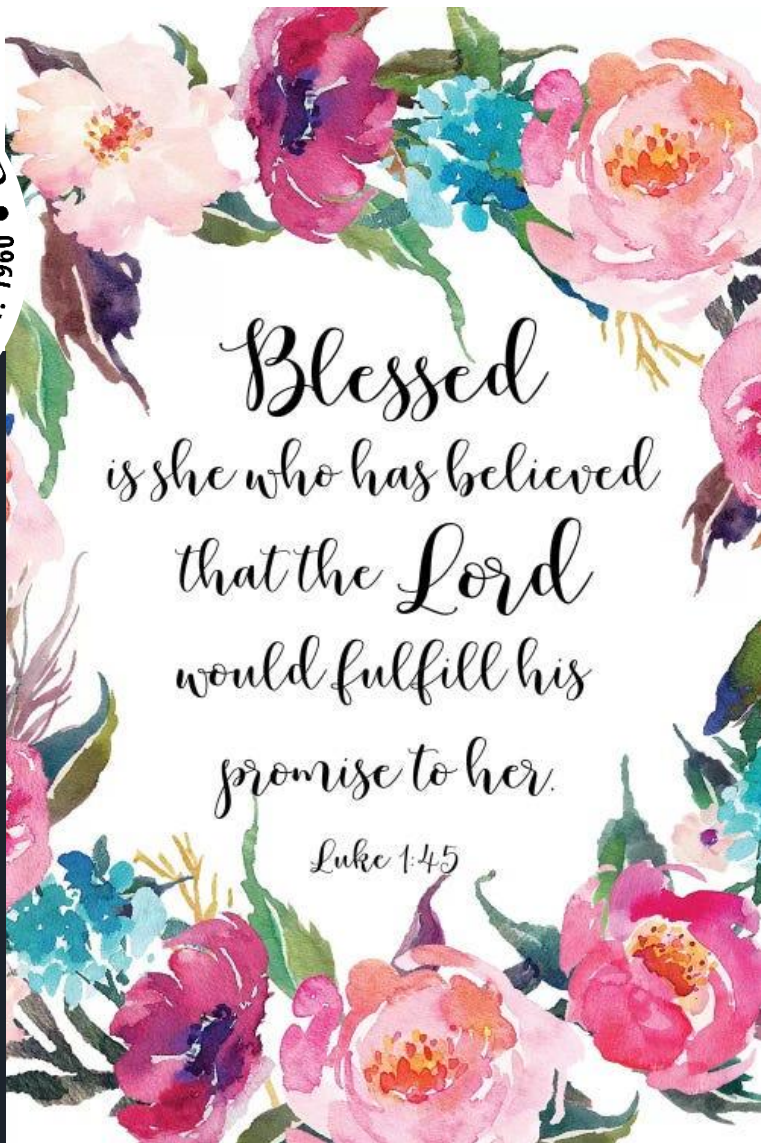 1960 •
Blessed
is she who has believed
that the Lord
would fulfill his
promise to her.
Luke 1:45